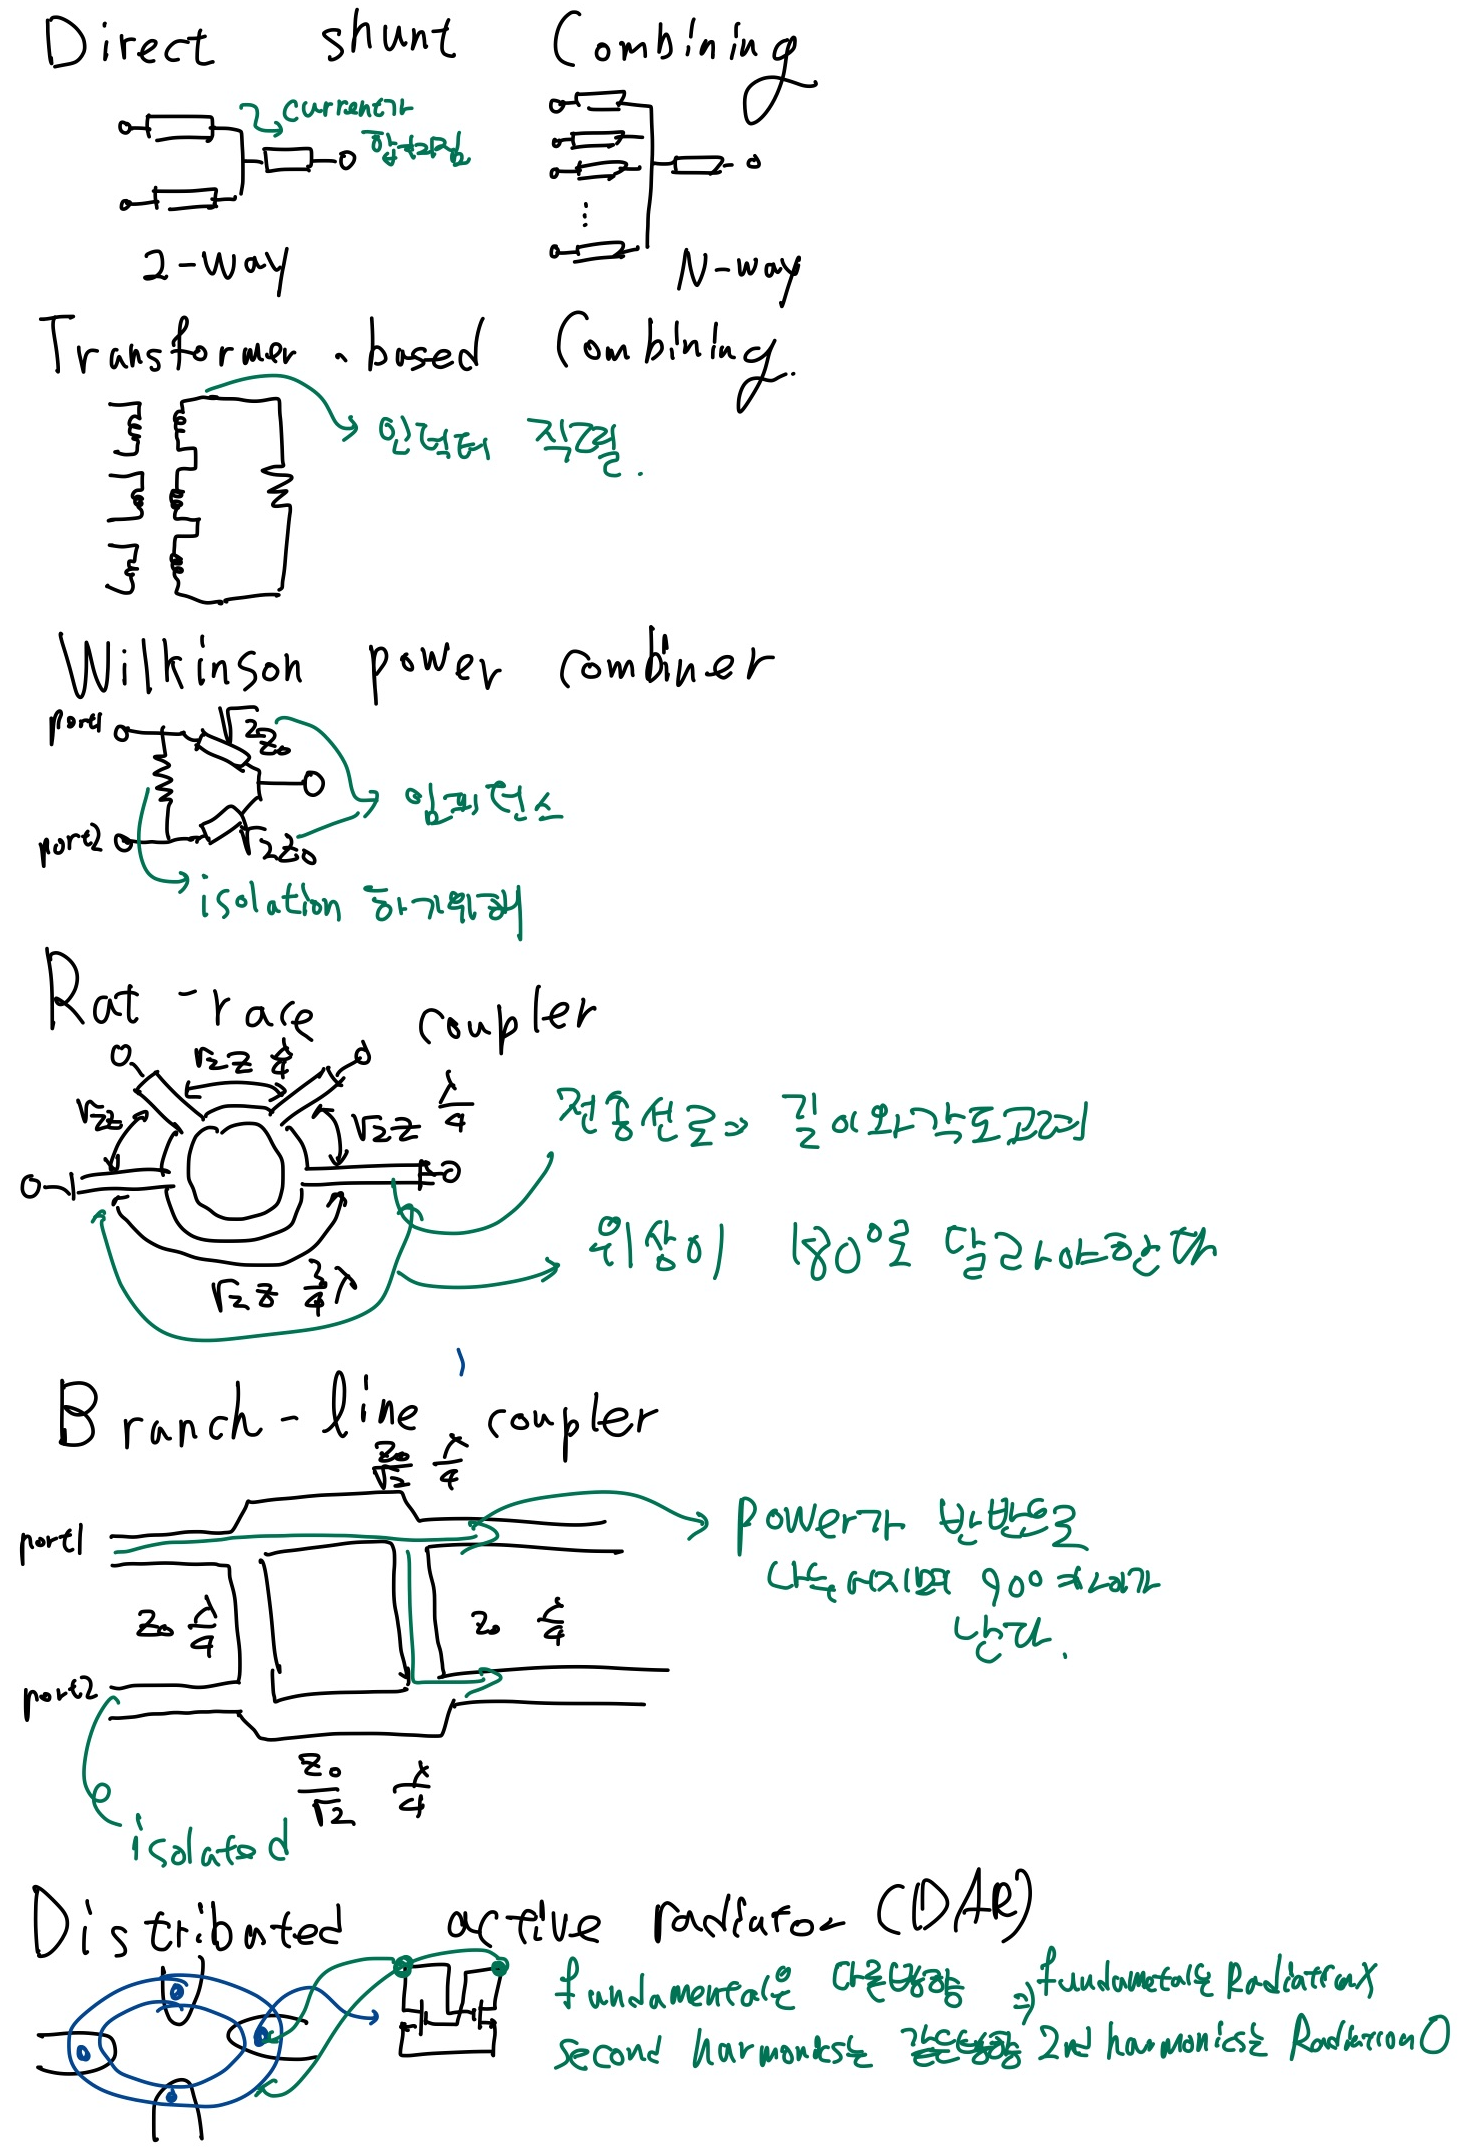 Direct shunt Combining
current가
합쳐짐
2-way
N-way
Transformer-based Combining.
인덕터 직렬.
Wilkinson power combiner
port1
√2Z₀
임피던스
port2
√2Z₀
isolation 하기위해
Rat-race coupler
√2Z λ/4
√2Z
√2Z λ/4
전송선로⇒ 길이와각도고려
위상이 180°로 달라야한다
√2Z 3/4λ
Branch-line coupler
Z₀/√2 λ/4
port1
power가 반반으로
나누어지며 90°차이가
난다.
Z₀ λ/4
Z₀ λ/4
port2
Z₀/√2 λ/4
isolated
Distributed active radiator (DAR)
fundamental은 다른방향 ⇒ fundametal은 RadiationX
second harmonics는 같은방향 2nd harmonics는 RadiationO